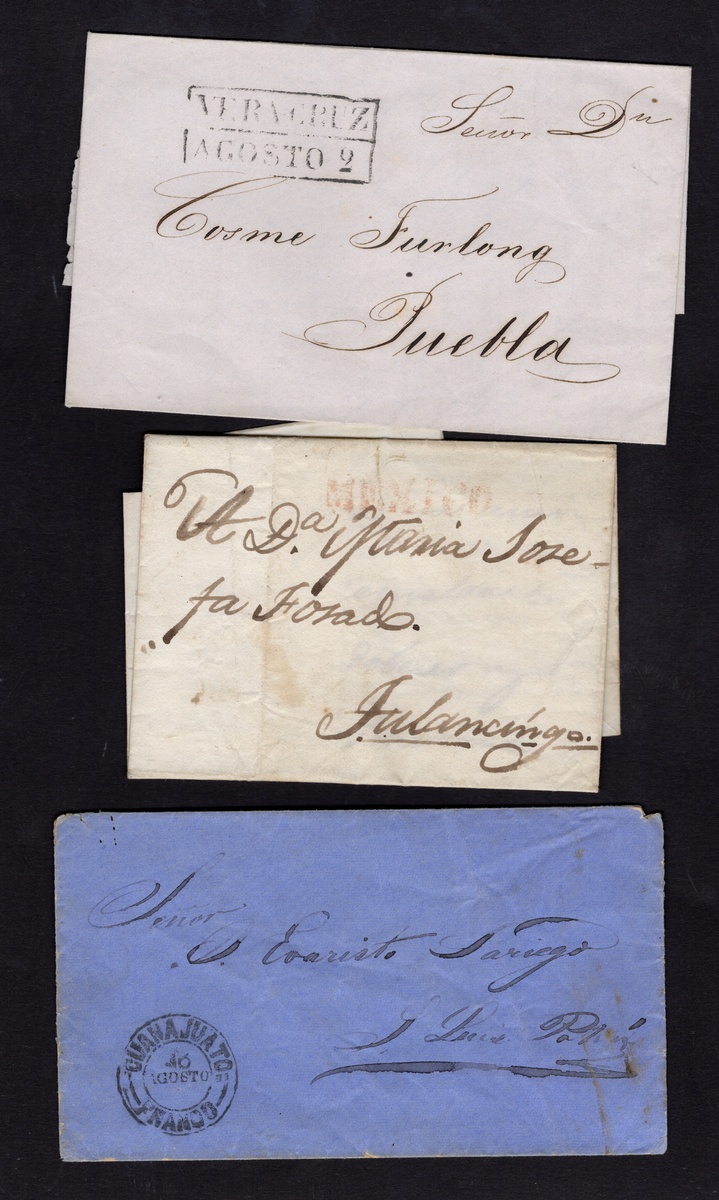 VERA-CRUZ
AGOSTO 2
Señor Dn
Cosme Furlong
Puebla
MEXICO
A Da. Maria Jose-
fa Fosado.
Tulancingo.
Señor
D. Evaristo
S Luis Potosi
GUANAJUATO
AGOSTO
FRANCO